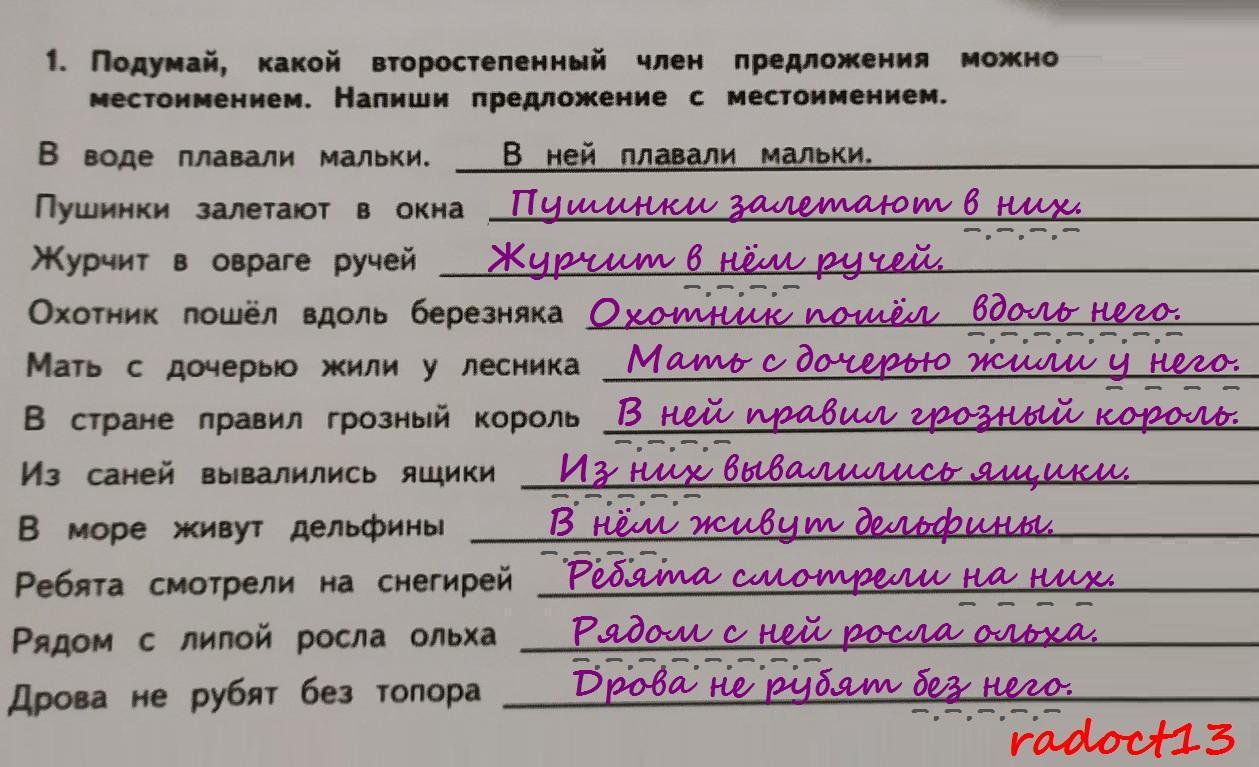 1. Подумай, какой второстепенный член предложения можно
местоимением. Напиши предложение с местоимением.
В воде плавали мальки. В ней плавали мальки.
Пушинки залетают в окна Пушинки залетают в них.
Журчит в овраге ручей Журчит в нём ручей.
Охотник пошёл вдоль березняка Охотник пошёл вдоль него.
Мать с дочерью жили у лесника Мать с дочерью жили у него.
В стране правил грозный король В ней правил грозный король.
Из саней вывалились ящики Из них вывалились ящики.
В море живут дельфины В нём живут дельфины.
Ребята смотрели на снегирей Ребята смотрели на них.
Рядом с липой росла ольха Рядом с ней росла ольха.
Дрова не рубят без топора Дрова не рубят без него.
radoct13